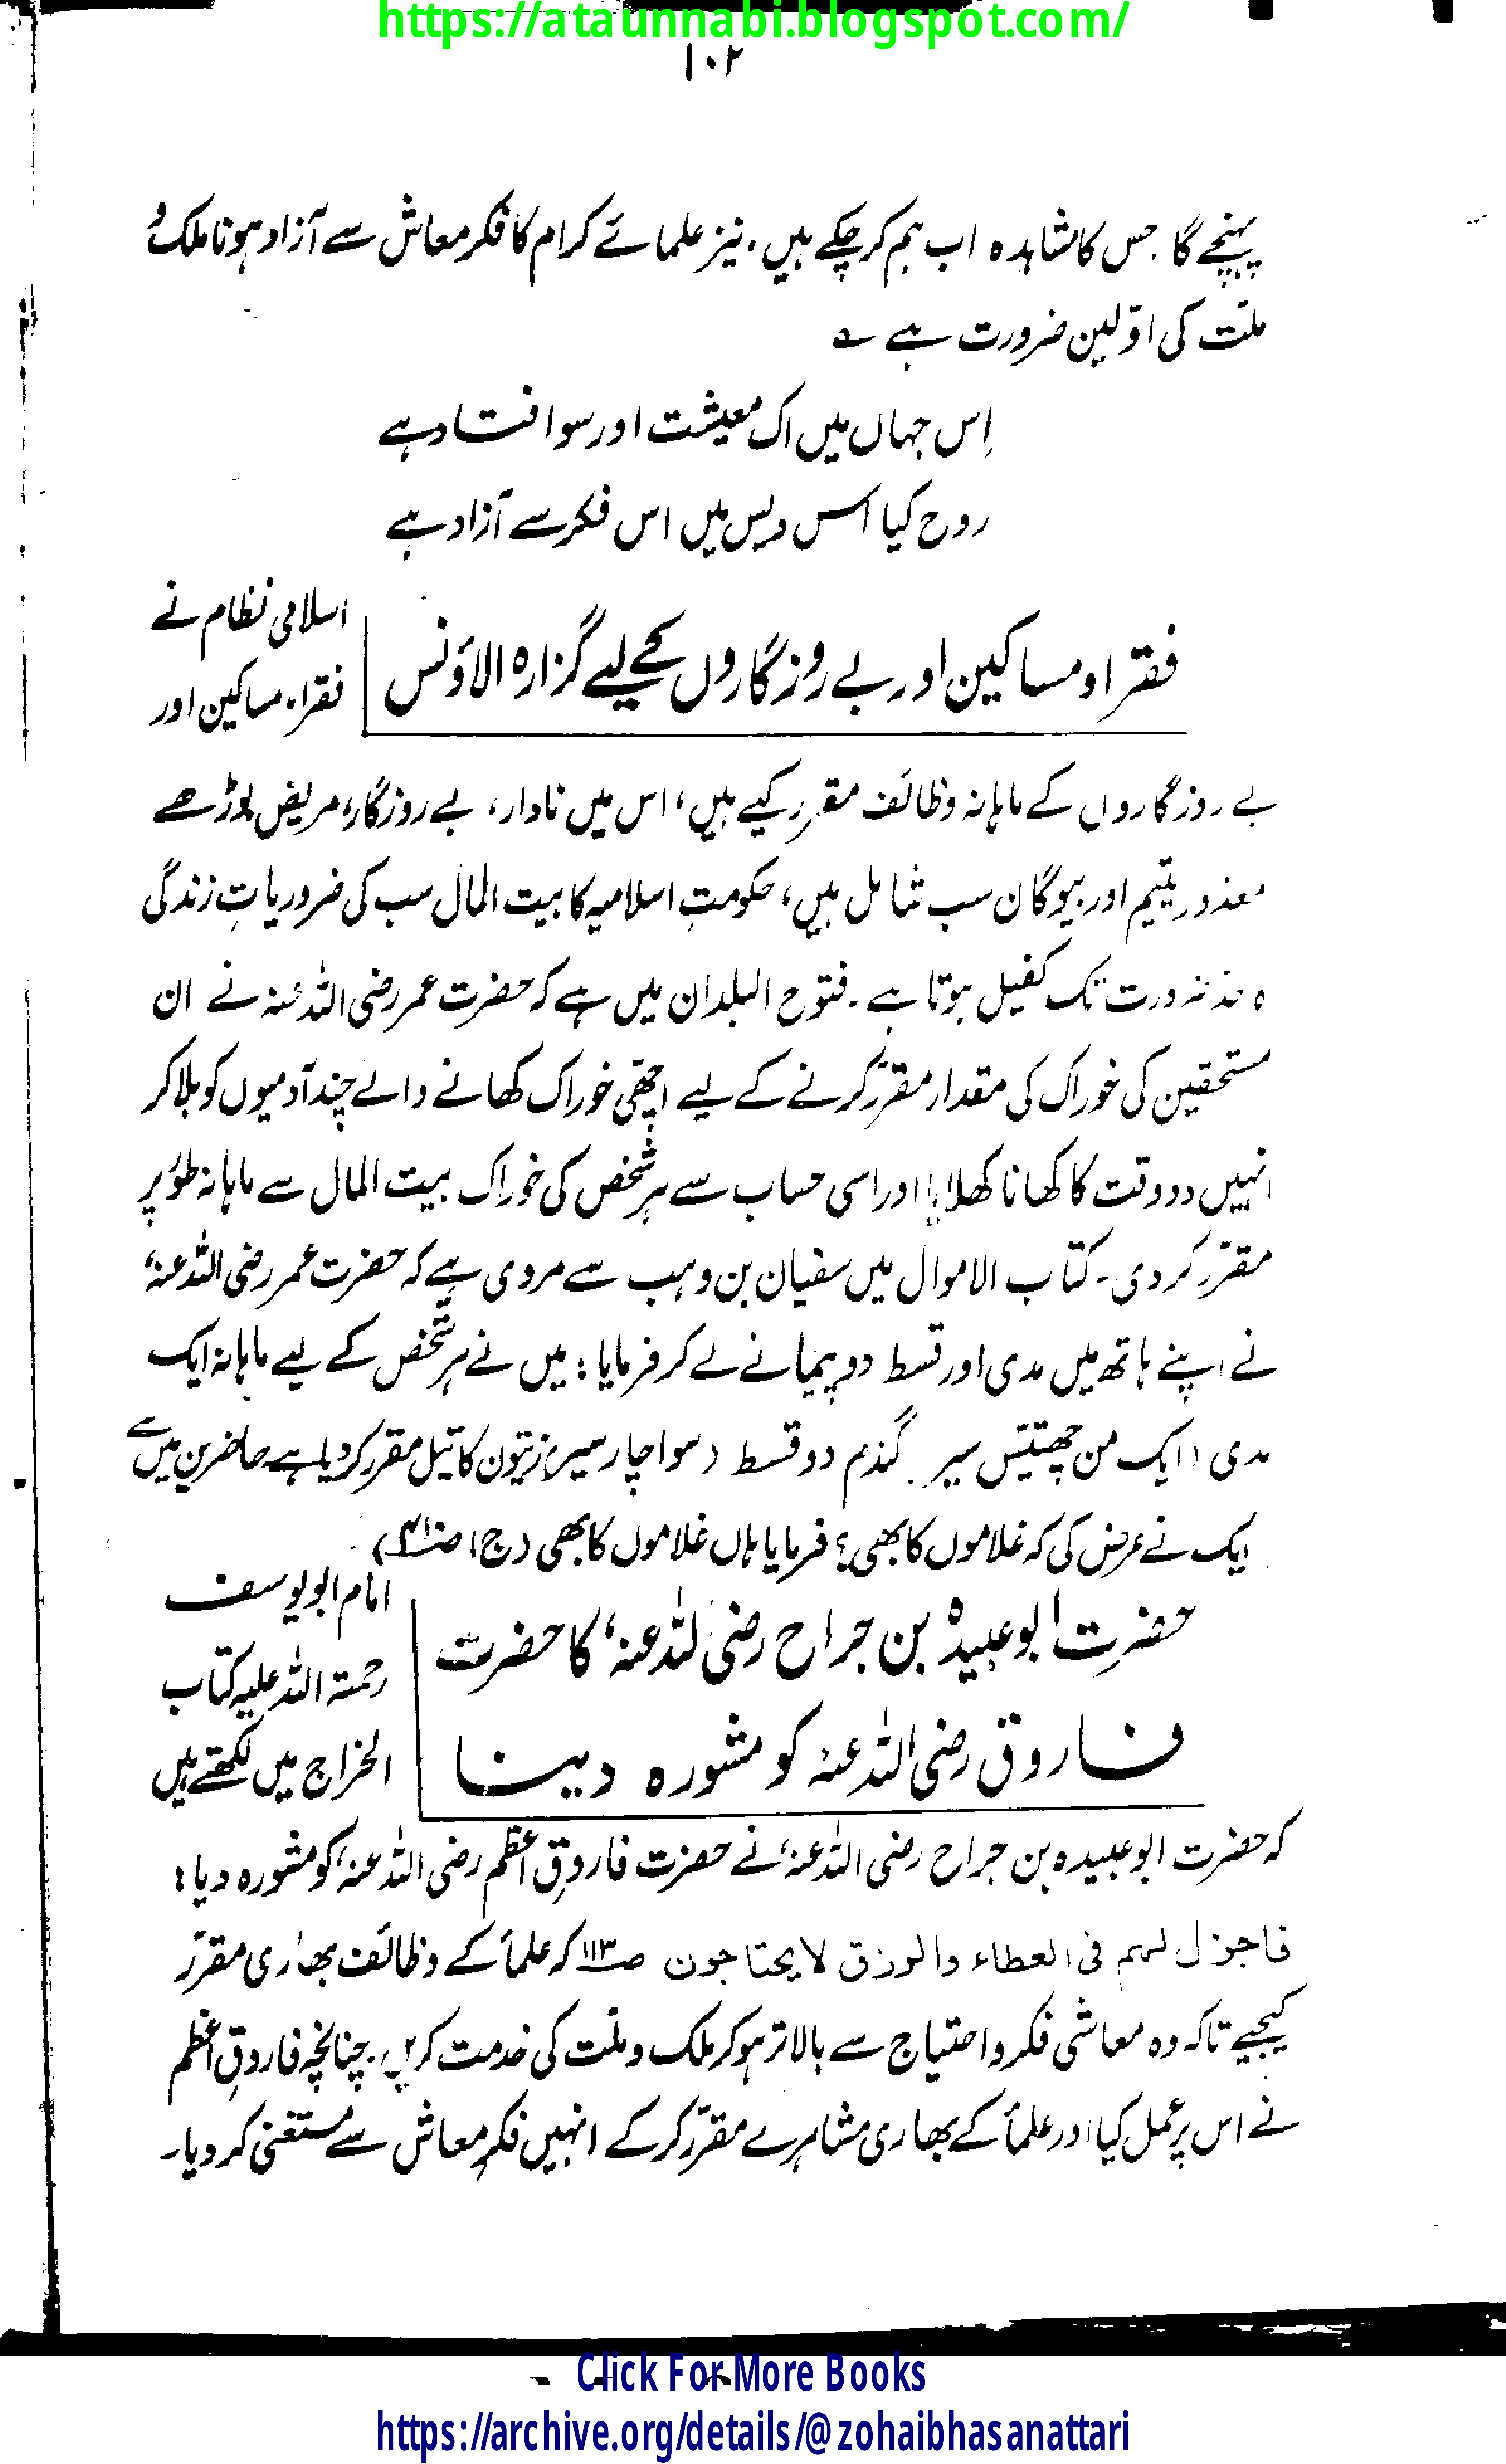 https://ataunnabi.blogspot.com/
۱۰۲
پہنچے گا۔ جس کا مشاہدہ اب ہم کر چکے ہیں، نیز علمائے کرام کا فکر معاش سے آزاد ہونا ملک و
ملّت کی اوّلین ضرورت ہے ؎
اِس جہاں میں اک معیشت اور سو افتاد ہے
روح کیا اس دیس میں اس فکر سے آزاد ہے
فقرا و مساکین اور بے روزگاروں کے لیے گزارہ الاؤنس
اسلامی نظام نے
فقراء مساکین اور
بے روزگاروں کے ماہانہ وظائف مقرر کیے ہیں، اس میں نادار، بے روزگار، مریض بوڑھے
معذور یتیم اور بیوگان سب شامل ہیں، حکومتِ اسلامیہ کا بیت المال سب کی ضروریاتِ زندگی
تک کفیل ہوتا ہے۔ فتوح البلدان میں ہے کہ حضرت عمر رضی اللہ عنہ نے ان
مستحقین کی خوراک کی مقدار مقرّر کرنے کے لیے اچھی خوراک کھانے والے چند آدمیوں کو بلا کر
انہیں دو وقت کا کھانا کھلایا اور اسی حساب سے ہر شخص کی خوراک بیت المال سے ماہانہ طور پر
مقرّر کر دی۔ کتاب الاموال میں سفیان بن وہب سے مروی ہے کہ حضرت عمر رضی اللہ عنہٗ
نے اپنے ہاتھ میں مدی اور قسط دو پیمانے لے کر فرمایا: میں نے ہر شخص کے لیے ماہانہ ایک
مدی (ایک من چھتیّس سیر) گندم دو قسط (سوا چار سیر) زیتون کا تیل مقرر کر دیا ہے حاضرین میں سے
ایک نے عرض کی کہ غلاموں کا بھی؟ فرمایا ہاں غلاموں کا بھی (ج۱
حضرت ابو عبیدہ بن جراح رضی اللہ عنہٗ کا حضرت
فاروق رضی اللہ عنہ کو مشورہ دینا
امام ابو یوسف
رحمۃ اللہ علیہ کتاب
الخراج میں لکھتے ہیں
کہ حضرت ابو عبیدہ بن جراح رضی اللہ عنہٗ نے حضرت فاروقِ اعظم رضی اللہ عنہٗ کو مشورہ دیا:
فاجزل لہم فی العطاء والرزق لایحتاجون ص۱۱۳ کہ علمأ کے وظائف بھاری مقرّر
کیجیے تاکہ وہ معاشی فکر و احتیاج سے بالاتر ہو کر ملک و ملّت کی خدمت کریں، چنانچہ فاروقِ اعظم
نے اس پر عمل کیا اور علمأ کے بھاری مشاہرے مقرّر کر کے انہیں فکرِ معاش سے مستغنی کر دیا۔
Click For More Books
https://archive.org/details/@zohaibhasanattari